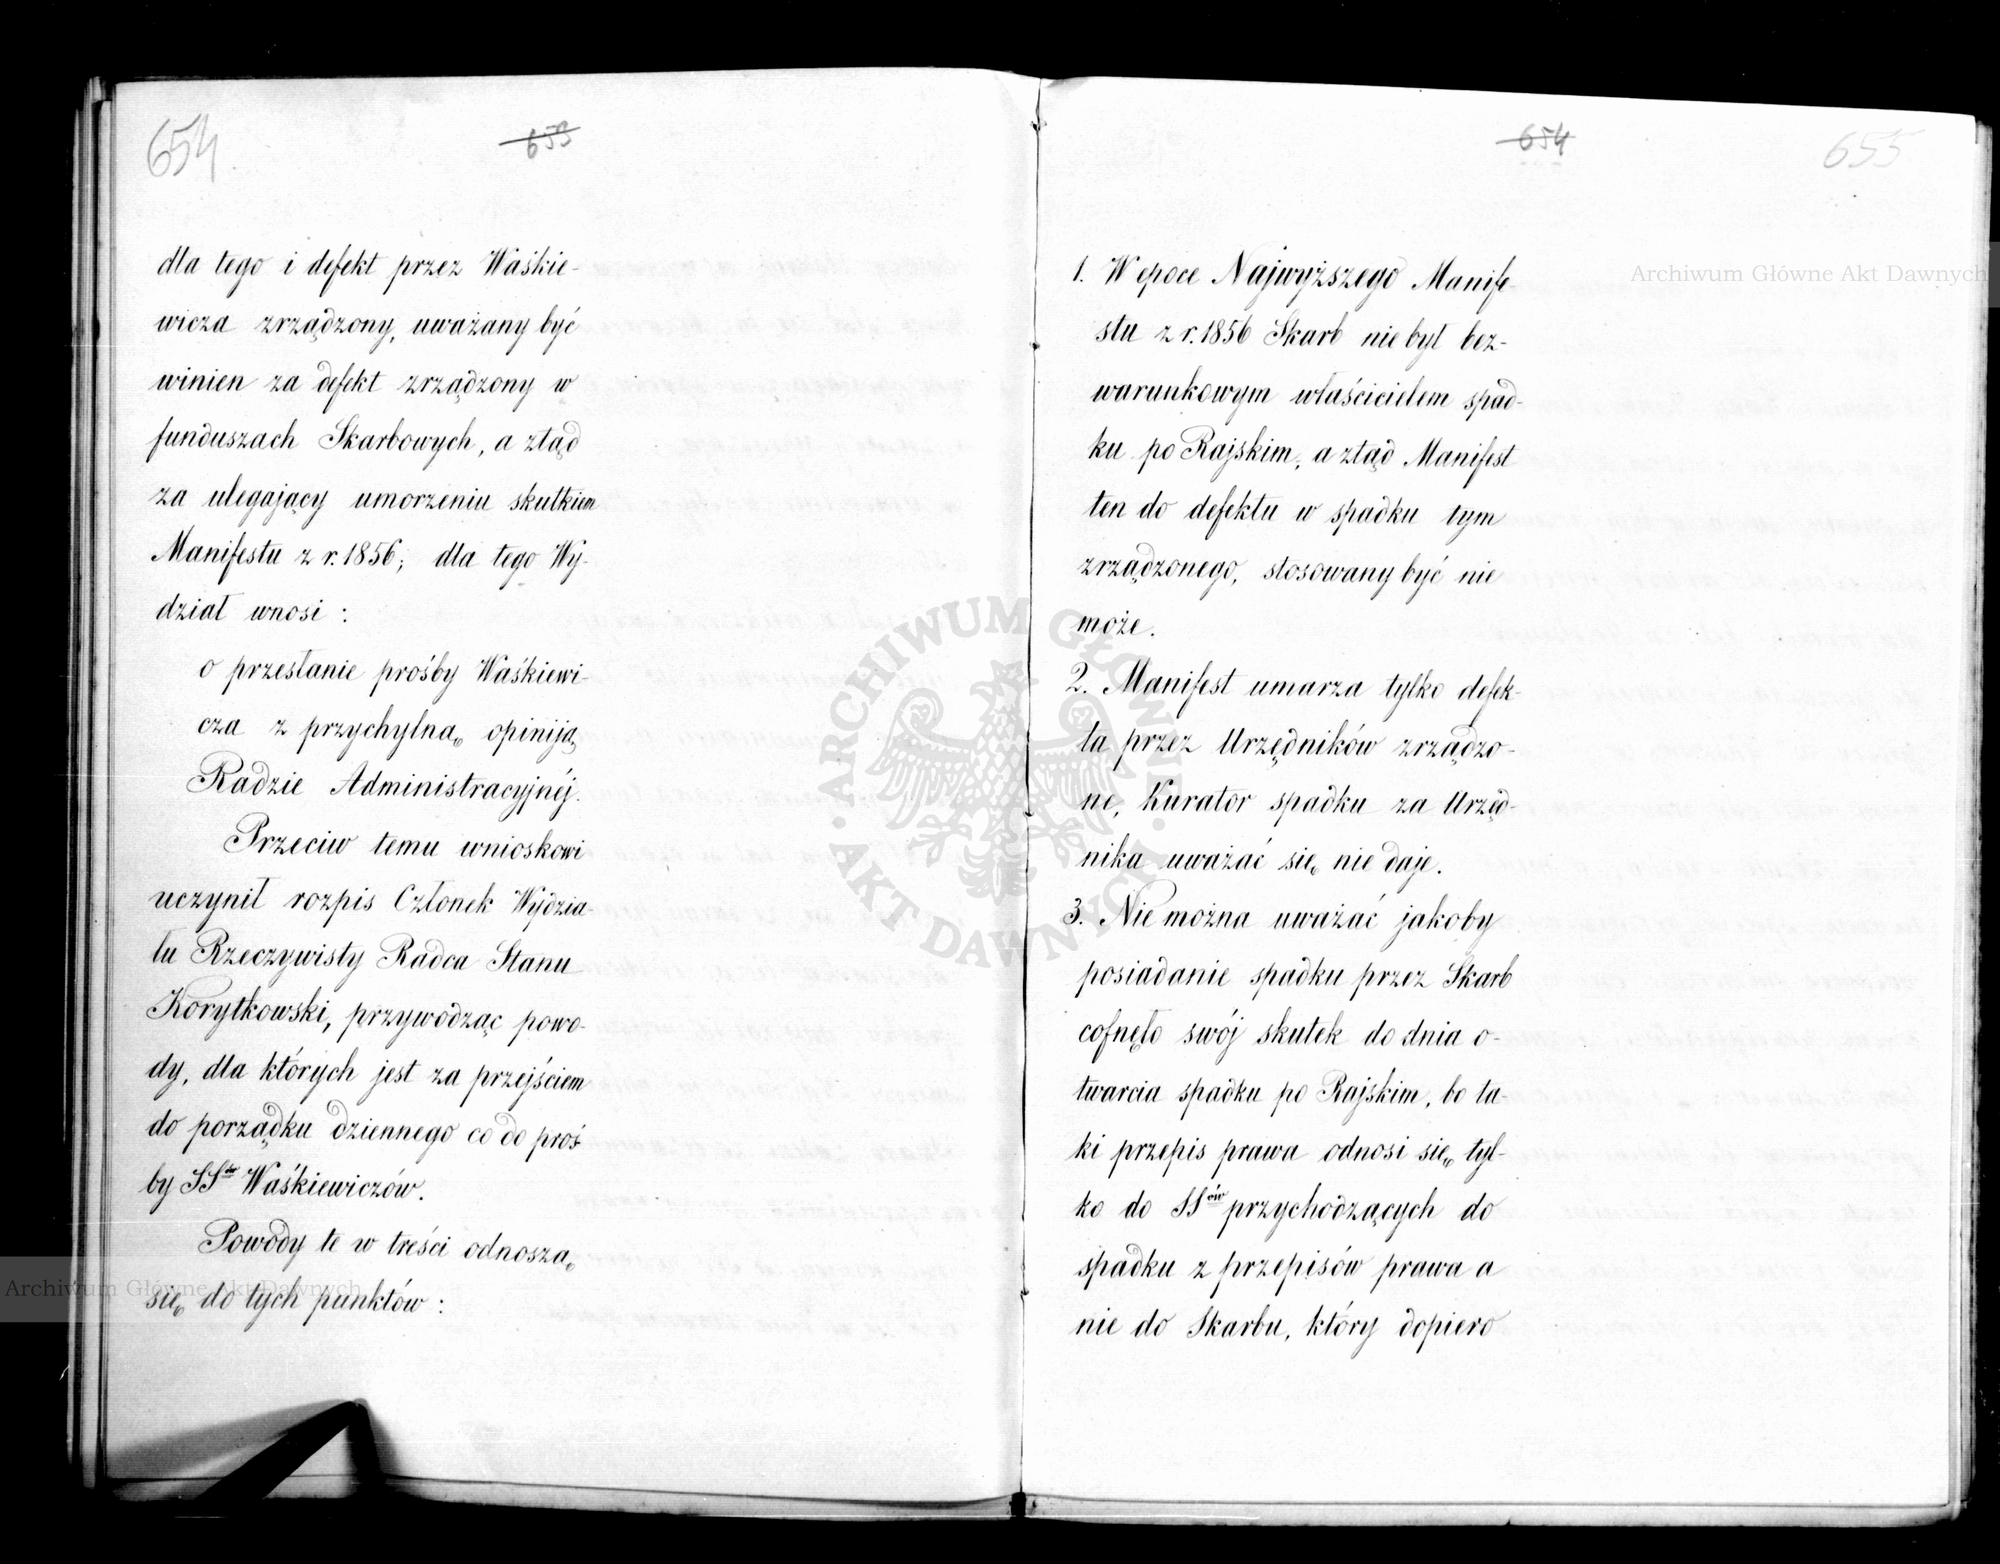 654
653
dla tego i defekt przez Waśkie-
wicza zrządzony, uważany być
winien za defekt zrządzony w
funduszach Skarbowych, a ztąd
za ulegający umorzeniu skutkiem
Manifestu z r. 1856; dla tego Wy-
dział wnosi:
o przesłanie prośby Waśkiewi-
cza z przychylną opiniją
Radzie Administracyjnéj.
Przeciw temu wnioskowi
uczynił rozpis Członek Wydzia-
łu Rzeczywisty Radca Stanu
Korytkowski, przywodząc powo-
dy, dla których jest za przejściem
do porządku dziennego co do proś-
by SS Waśkiewiczów.
Powody te w treści odnoszą
się do tych punktów:
654
655
1. W epoce Najwyższego Manife-
stu z r. 1856 Skarb nie był bez-
warunkowym właścicielem spad-
ku po Rajskim, a ztąd Manifest
ten do defektu w spadku tym
zrządzonego, stosowany być nie
może.
2. Manifest umarza tylko defek-
ta przez Urzędników zrządzo-
ne, Kurator spadku za Urzęd-
nika uważać się nie daje.
3. Nie można uważać jakoby
posiadanie spadku przez Skarb
cofnęło swój skutek do dnia o-
twarcia spadku po Rajskim, bo ta-
ki przepis prawa odnosi się tyl-
ko do SSów przychodzących do
spadku z przepisów prawa a
nie do Skarbu, który dopiero
Archiwum Główne Akt Dawnych
Archiwum Główne Akt Dawnych
ARCHIWUM GŁÓWNE AKT DAWNYCH